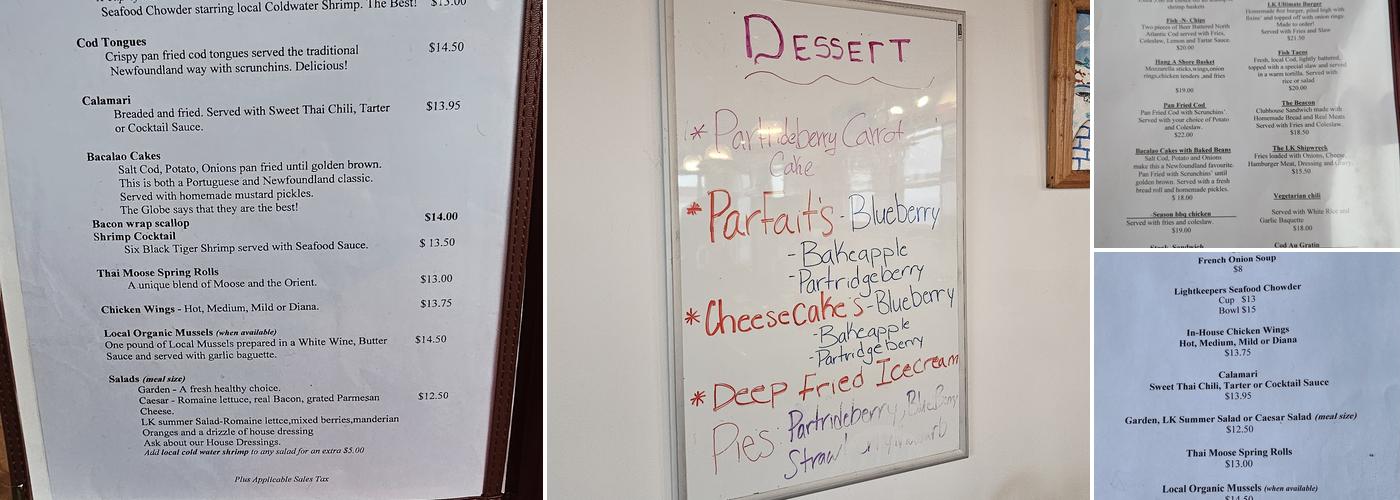 Seafood Chowder starring local Coldwater Shrimp. The Best! $13.00
Cod Tongues
Crispy pan fried cod tongues served the traditional $14.50
Newfoundland way with scrunchins. Delicious!
Calamari
Breaded and fried. Served with Sweet Thai Chili, Tarter $13.95
or Cocktail Sauce.
Bacalao Cakes
Salt Cod, Potato, Onions pan fried until golden brown.
This is both a Portuguese and Newfoundland classic.
Served with homemade mustard pickles.
The Globe says that they are the best!
Bacon wrap scallop $14.00
Shrimp Cocktail
Six Black Tiger Shrimp served with Seafood Sauce. $ 13.50
Thai Moose Spring Rolls
A unique blend of Moose and the Orient. $13.00
Chicken Wings - Hot, Medium, Mild or Diana. $13.75
Local Organic Mussels (when available)
One pound of Local Mussels prepared in a White Wine, Butter $14.50
Sauce and served with garlic baguette.
Salads (meal size)
Garden - A fresh healthy choice.
Caesar - Romaine lettuce, real Bacon, grated Parmesan $12.50
Cheese.
LK summer Salad-Romaine lettce,mixed berries,manderian
Oranges and a drizzle of house dressing
Ask about our House Dressings.
Add local cold water shrimp to any salad for an extra $5.00
Plus Applicable Sales Tax
DESSERT
* Partrideberry Carrot
Cake
* Parfait's - Blueberry
- Bakeapple
- Partridgeberry
* Cheesecake's - Blueberry
- Bakeapple
- Partridgeberry
* Deep Fried Icecream
Pies: Partrideberry, BlueBerry
Straw
shrimp baskets
Fish -N- Chips
Two pieces of Beer Battered North
Atlantic Cod served with Fries,
Coleslaw, Lemon and Tartar Sauce.
$20.00
Hang A Shore Basket
Mozzarella sticks,wings,onion
rings,chicken tenders ,and fries
$19.00
Pan Fried Cod
Pan Fried Cod with Scrunchins'.
Served with your choice of Potato
and Coleslaw.
$22.00
Bacalao Cakes with Baked Beans
Salt Cod, Potato and Onions
make this a Newfoundland favourite.
Pan Fried with Scrunchins' until
golden brown. Served with a fresh
bread roll and homemade pickles.
$ 18.00
-Season bbq chicken
Served with fries and coleslaw.
$19.00
Sandwich
LK Ultimate Burger
Homemade 8oz burger, piled high with
fixins' and topped off with onion rings.
Made to order!
Served with Fries and Slaw
$21.50
Fish Tacos
Fresh, local Cod, lightly battered,
topped with a special slaw and served
in a warm tortilla. Served with
rice or salad
$20.00
The Beacon
Clubhouse Sandwich made with
Homemade Bread and Real Meats
Served with Fries and Coleslaw.
$18.50
The LK Shipwreck
Fries loaded with Onions, Cheese,
Hamburger Meat, Dressing and Gravy.
$15.50
Vegetarian chili
Served with White Rice and
Garlic Baquette
$18.00
Cod Au Gratin
French Onion Soup
$8
Lightkeepers Seafood Chowder
Cup $13
Bowl $15
In-House Chicken Wings
Hot, Medium, Mild or Diana
$13.75
Calamari
Sweet Thai Chili, Tarter or Cocktail Sauce
$13.95
Garden, LK Summer Salad or Caesar Salad (meal size)
$12.50
Thai Moose Spring Rolls
$13.00
Local Organic Mussels (when available)
$14.50